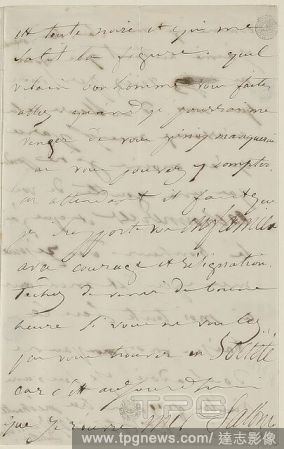 est toute noire et qui me
salit la figure. quel
vilain bonhomme vous faites
allez quand je pourrai me
venger de vous je n'y manquerai
pas vous pouvez y compter.
en attendant il faut que
je supporte
avec courage et résignation
tâchez de venir de bonne
heure si vous ne voulez
pas vous trouver en Société
car c'est aujourd'hui
que je
TPG
www.tpgnews.com/達志影像